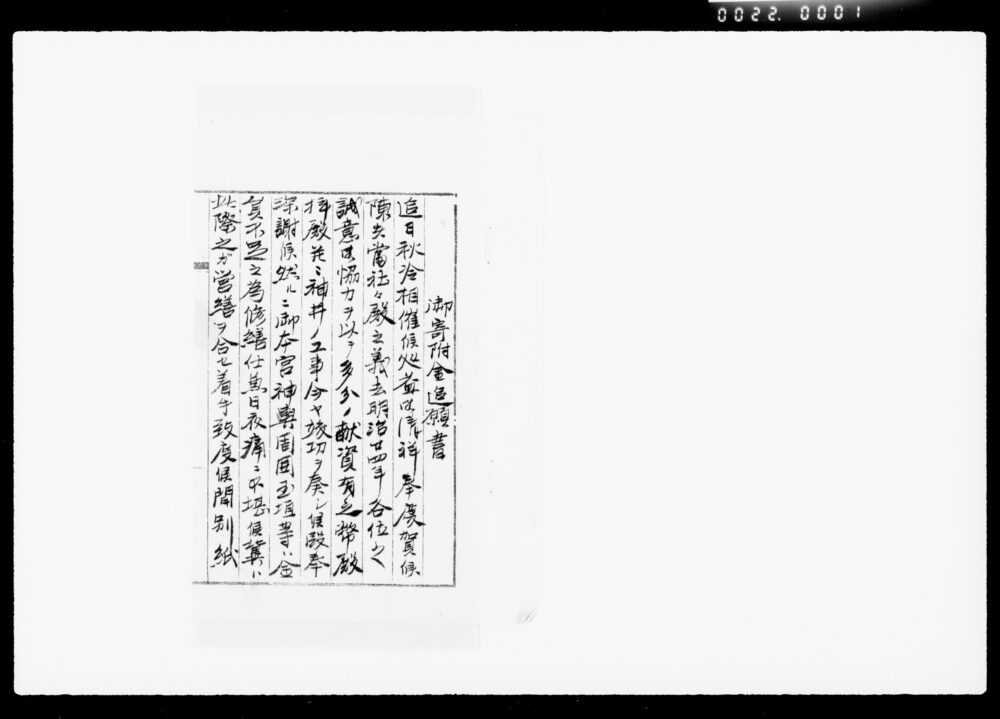 0022. 0001
御寄附金追願書
追日秋冷相催候処益御清祥奉慶賀候
陳者當社々殿之義去明治廿四年各位之
誠意御協力ヲ以テ多分ノ献資有之幣殿
拝殿並ニ神井ノ工事今ヤ竣功ヲ奏シ候段奉
深謝候然ルニ御本宮神輿周囲玉垣等ハ金
員不足之為修繕仕兼日夜痛ニ不堪候冀ハ
此際之ガ営繕ヲ合セ着手致度候間別紙